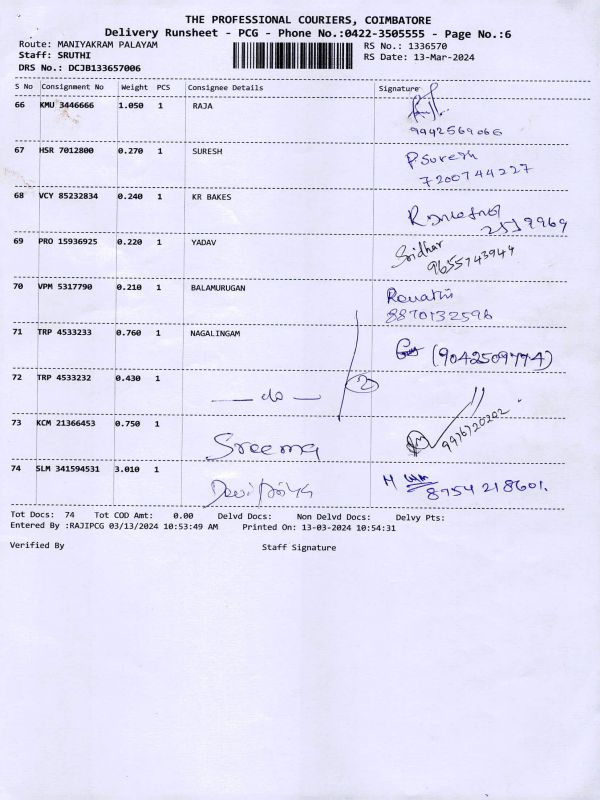 THE PROFESSIONAL COURIERS, COIMBATORE
Delivery Runsheet - PCG - Phone No.:0422-3505555 - Page No.:6
Route: MANIYAKRAM PALAYAM RS No.: 1336570
Staff: SRUTHI RS Date: 13-Mar-2024
DRS No.: DCJB133657006
S No Consignment No Weight PCS Consignee Details Signature
66 KMU 3446666 1.050 1 RAJA
9942569066
67 HSR 7012800 0.270 1 SURESH P Suresh
7200744227
68 VCY 85232834 0.240 1 KR BAKES
2517969
69 PRO 15936925 0.220 1 YADAV Sridhar
9655743944
70 VPM 5317790 0.210 1 BALAMURUGAN Revathi
8870132596
71 TRP 4533233 0.760 1 NAGALINGAM (9042509774)
72 TRP 4533232 0.430 1 — do — 2
73 KCM 21366453 0.750 1 Sreema 9976720202
74 SLM 341594531 3.010 1 Devi Priya 8754218601.
Tot Docs: 74 Tot COD Amt: 0.00 Delvd Docs: Non Delvd Docs: Delvy Pts:
Entered By :RAJIPCG 03/13/2024 10:53:49 AM Printed On: 13-03-2024 10:54:31
Verified By Staff Signature